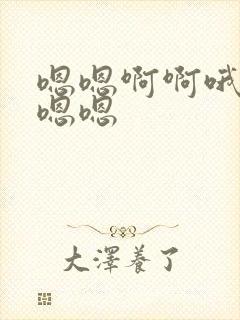 嗯嗯啊啊哦
嗯嗯
大澤養了